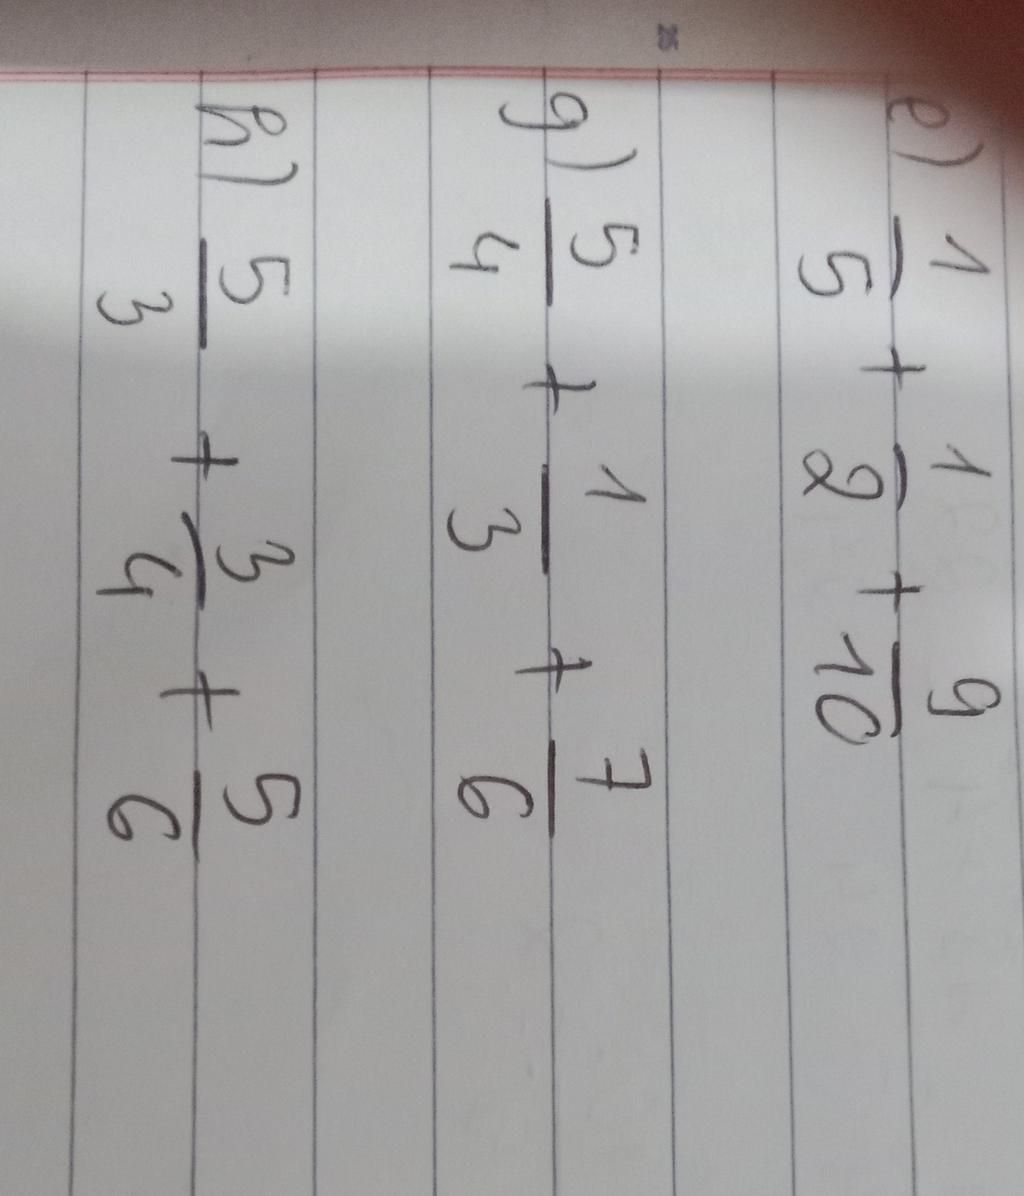 e) 1/5 + 1/2 + 9/10
g) 5/4 + 1/3 + 7/6
h) 5/3 + 3/4 + 5/6